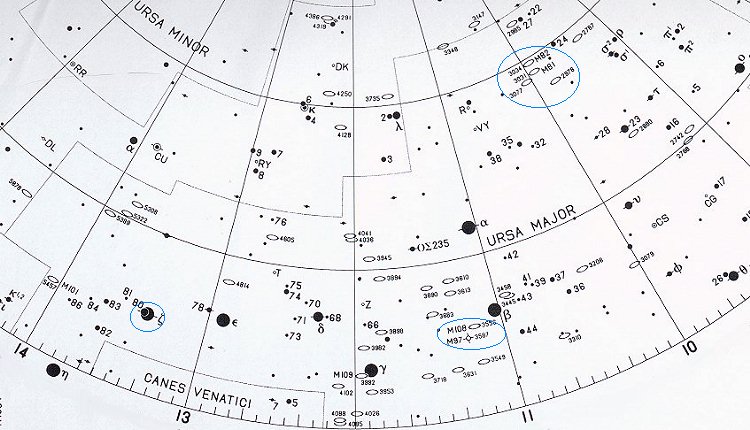 URSA MINOR
4386 4291
4319
3147
22
2985 27
2787
24
3348
σ² ρ
σ¹
π¹ 2
π²
ο
RR
DK
3034 M82
3031 M81
3077
2976
6
5
4250
3735
6
κ
4
2
λ
R
τ
VY
4128
23
2880
16
28
2742
2768
DL
α
CU
9 7
RY
8
3
35
32
38
5678
17
υ
CG
5308
5322
5389
76
4605
4041
4036
ΟΣ235
α
URSA MAJOR
CS
3945
42
3206
3079
φ
26 θ
5457
M101
T
4814
75
74
3894
3610
3690
3613
3458
41
39 37
43
3445
36
86 84 83 81
80
ζ
78
ε
70
71
δ
68
73
Z
66
3683
β
82
3898
M108 3556
M97 3587
44
3310
3982
14
η
CANES VENATICI
γ
M109
3992
4102
3953
3718
3631
3549
10
13
7
5
4088
4085
4026
11